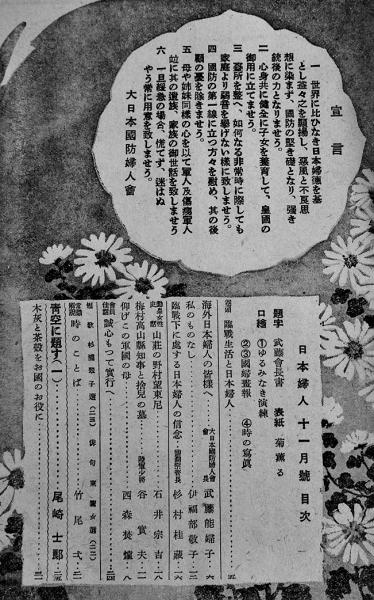 宣言
一 世界に比ひなき日本婦德を基
とし益々之を顯揚し、惡風と不良思
想に染まず、國防の堅き礎となり、强き
銃後の力となりませう。
二 心身共に健全に子女を養育して、皇國の
御用に立てませう。
三 臺所を整へ、如何なる非常時に際しても
家庭より弱音を擧げない樣に致しませう。
四 國防の第一線に立つ方々を慰め、其の後
顧の憂を除きませう。
五 母や姉妹同樣の心を以て軍人及傷痍軍人
竝に其の遺族、家族の御世話を致しませう
六 一旦緩急の場合、慌てず、迷はぬ
やう常に用意を致しませう。
大日本國防婦人會
日本婦人 十一月號目次
題字 武藤會長書 表紙 菊薰る
口繪 ①ゆるみなき演練
②③國婦畫報 ④時の寫眞
卷頭 臨戰生活と日本婦人……五
海外日本婦人の皆樣へ 大日本國防婦人會會長 武藤能婦子…六
私のものなし……伊福部敬子…八
臨戰下に處する日本婦人の信念……杉村桂藏…
山莊の野村望東尼……石井宗吉…
梅村高山縣知事と捨兒の墓……谷實夫…
仰げこの軍國の母……西森焚燿…
誠心もつて實行へ……
短歌 杉浦翠子選 俳句
時のことば……竹尾弌…
靑空に題す(一)……尾崎士郎…
木灰と茶殼をお國のお役に……